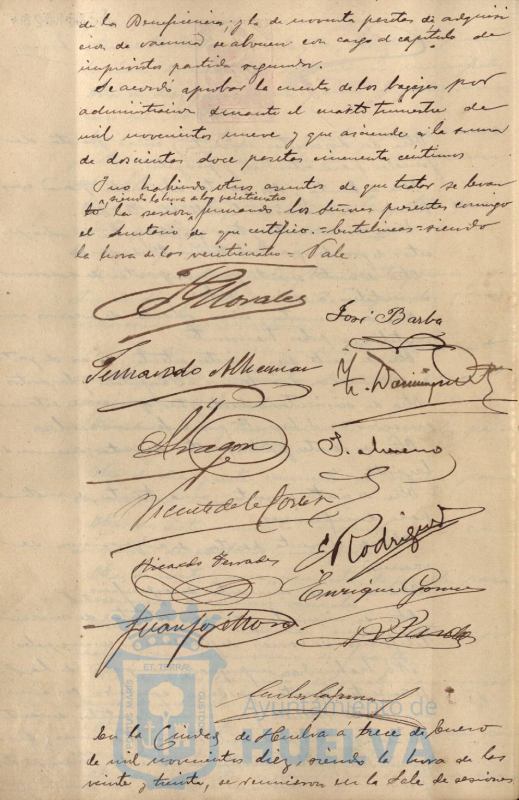 de la Beneficencia; y la de noventa pesetas de adquisi
cion de vacuna se abonen con cargo al capitulo de
imprevistos partida segunda.
Se acordó aprobar la cuenta de los bagajes por
administracion durante el cuarto trimestre de
mil novecientos nueve y que asciende á la suma
de doscientas doce pesetas cincuenta céntimos
Y no habiendo otros asuntos de que tratar se levan
siendo la hora de las veinticuatro
tó la sesion, firmando los Señores presentes conmigo
el Secretario de que certifico. = Entrelineas = siendo
la hora de las veinticuatro = Vale
Morales
José Barba
Fernando Alleman
Dominguez
Aragon
J. Moreno
Vicente de la Corte
E. Rodriguez
Ricardo Terrades
Enrique Gomez
Juan José Mora
Carlos
Ayuntamiento de
HUELVA
En la Ciudad de Huelva á trece de Enero
de mil novecientos diez, siendo la hora de las
veinte y treinta, se reunieron en la Sala de sesiones